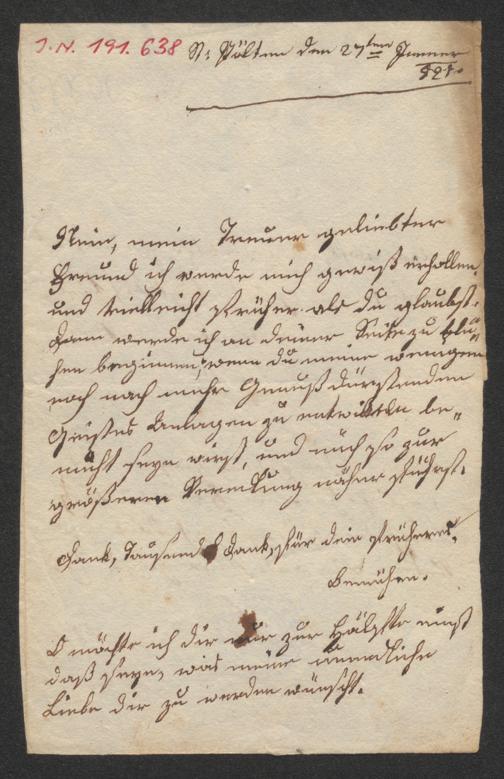 I. N. 191.638 St: Pölten den 27ten Jänner
821.
Nein, mein Treuer geliebter
Freund ich werde mich gewiß erhollen,
und vielleicht früher als du glaubst.
Dann werde ich an deiner Seite zu blü-
hen beginnen, wenn du meine wenigen
noch nach mehr Genuß dürstenden
Geistes Anlagen zu entwikeln be-
müht seyn wirst, und mich so zur
größeren Veredlung näher führst.
Dank, Tausend Dank, für dein früheres
Bemühen.
O möchte ich dir nur zur Hälfte einst
daß seyn, was meine unendliche
Liebe dir zu werden wünscht.